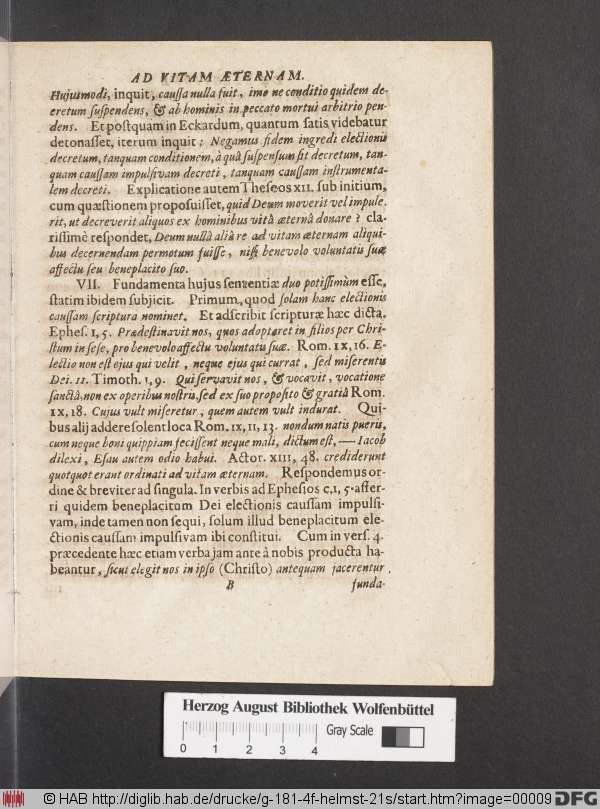 AD VITAM ÆTERNAM.
Hujusmodi, inquit, caussa nulla fuit, imo ne conditio quidem de-
cretum suspendens, & ab hominis in peccato mortui arbitrio pen-
dens. Et postquam in Eckardum, quantum satis videbatur
detonasset, iterum inquit: Negamus fidem ingredi electionis
decretum, tanquam conditionem, à quâ suspensum sit decretum, tan-
quam caussam impulsivam decreti, tanquam caussam instrumenta-
lem decreti. Explicatione autem Theseos XII. sub initium,
cum quæstionem proposuisset, quid Deum moverit vel impule-
rit, ut decreverit aliquos ex hominibus vitâ æternâ donare? cla-
rissimè respondet, Deum nullâ aliâ re ad vitam æternam aliqui-
bus decernendam permotum fuisse, nisi benevolo voluntatis suæ
affectu seu beneplacito suo.
VII. Fundamenta hujus sententiæ duo potissimùm esse,
statim ibidem subjicit. Primum, quod solam hanc electionis
caussam scriptura nominet. Et adscribit scripturæ hæc dicta.
Ephes. 1, 5. Prædestinavit nos, quos adoptaret in filios per Chri-
stum in sese, pro benevolo affectu voluntatis suæ. Rom. IX, 16. E-
lectio non est ejus qui velit, neque ejus qui currat, sed miserentis
Dei. II. Timoth. 1, 9. Qui servavit nos, & vocavit, vocatione
sanctâ, non ex operibus nostris sed ex suo proposito & gratiâ Rom.
IX, 18. Cujus vult miseretur, quem autem vult indurat. Qui-
bus alij addere solent loca Rom. IX, 11, 13. nondum natis pueris,
cum neque boni quippiam fecissent neque mali, dictum est, — Iacob
dilexi, Esau autem odio habui. Actor. XIII, 48. crediderunt
quotquot erant ordinati ad vitam æternam. Respondemus or-
dine & breviter ad singula. In verbis ad Ephesios c. 1, 5. asser-
ri quidem beneplacitum Dei electionis caussam impulsi-
vam, inde tamen non sequi, solum illud beneplacitum ele-
ctionis caussam impulsivam ibi constitui. Cum in vers. 4.
præcedente hæc etiam verba jam ante à nobis producta ha-
beantur, sicut elegit nos in ipso (Christo) antequam jacerentur
B
funda-
Herzog August Bibliothek Wolfenbüttel
Gray Scale
0 1 2 3 4
© HAB http://diglib.hab.de/drucke/g-181-4f-helmst-21s/start.htm?image=00009
DFG